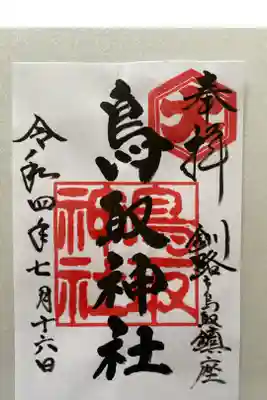 奉拝
釧路市鳥取鎮座
鳥取神社
鳥取神社
令和四年七月十六日